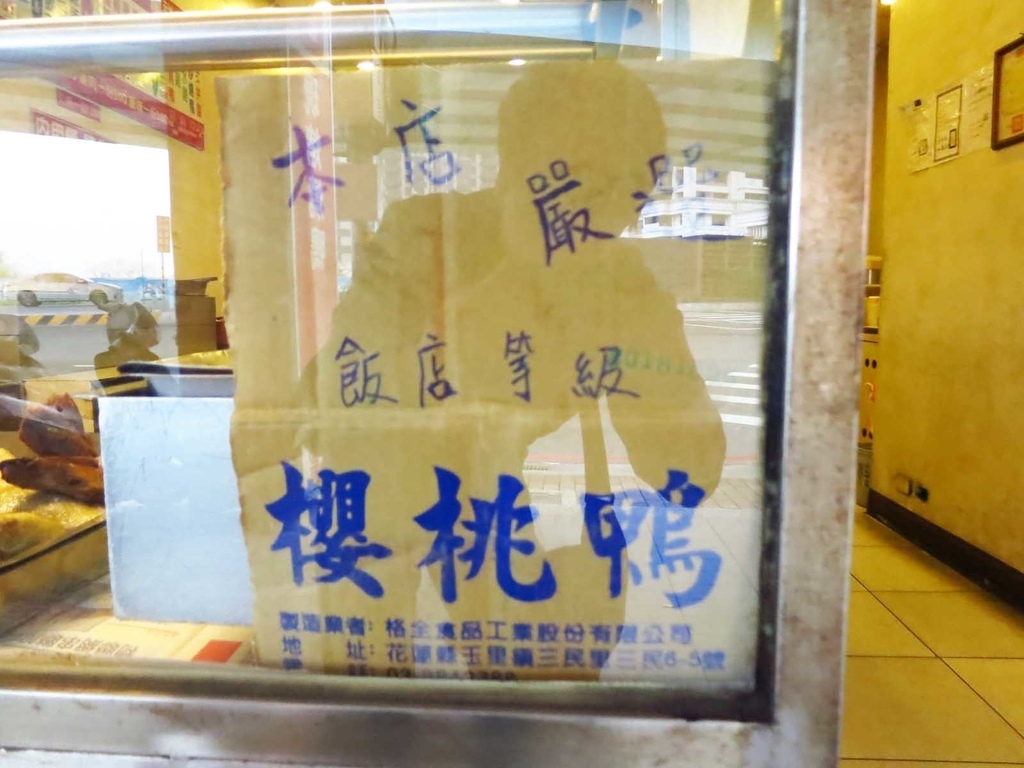 本店嚴選
飯店等級
櫻桃鴨
製造業者：格全食品工業股份有限公司
地 址：花蓮縣玉里鎮三民里三民6-5號